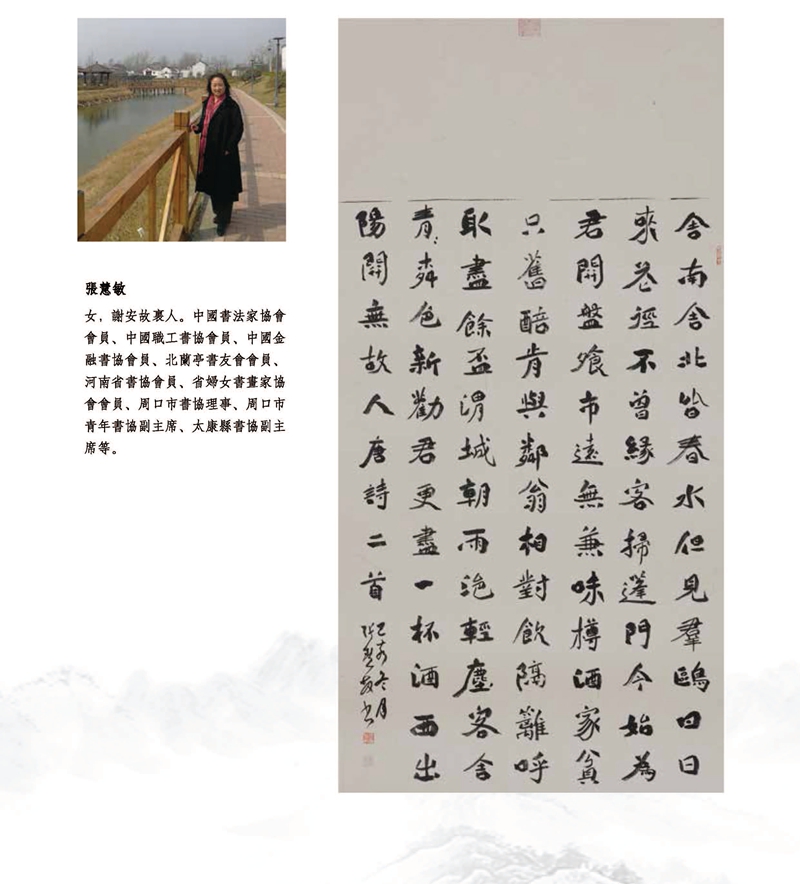 張慧敏
女，謝安故裏人。中國書法家協會
會員、中國職工書協會員、中國金
融書協會員、北蘭亭書友會會員、
河南省書協會員、省婦女書畫家協
會會員、周口市書協理事、周口市
青年書協副主席、太康縣書協副主
席等。
舍南舍北皆春水但見羣鷗日日
來花徑不曾緣客掃蓬門今始為
君開盤飱市遠無兼味樽酒家貧
只舊醅肯與鄰翁相對飲隔籬呼
取盡餘盃渭城朝雨浥輕塵客舍
青々柳色新勸君更盡一杯酒西出
陽關無故人唐詩二首
己亥冬月
張慧敏書